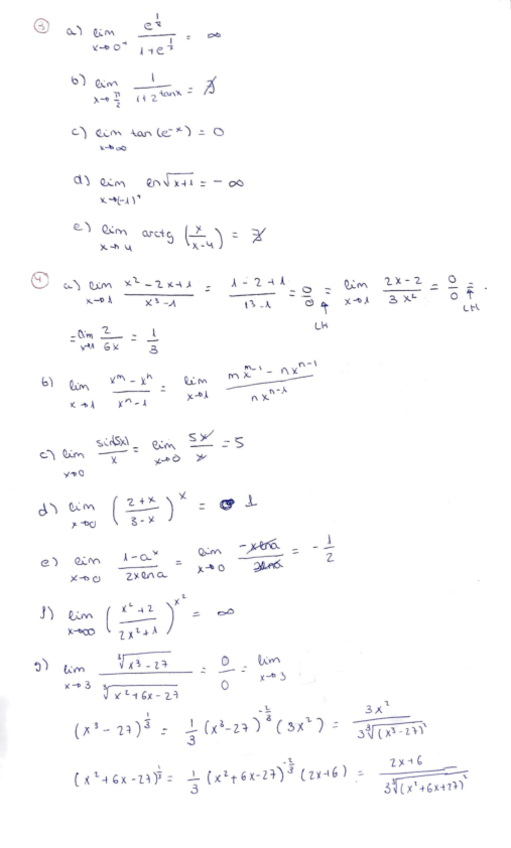 3) a) lim x→0⁺ e^(1/x) / (1+e^(1/x)) = ∞
b) lim x→π/2 1 / (1+2^(tanx)) = ∄
c) lim x→∞ tan(e^-x) = 0
d) lim x→(-1)⁺ ln√(x+1) = -∞
e) lim x→4 arctg (x/(x-4)) = ∄
4) a) lim x→1 (x²-2x+1)/(x³-1) = (1-2+1)/(13-1) = 0/0 =↑LH lim x→1 (2x-2)/(3x²) = 0/0 =↑LH
= lim x→1 2/(6x) = 1/3
b) lim x→1 (x^m - x^n)/(x^n-1) = lim x→1 (mx^(m-1) - nx^(n-1))/(nx^(n-1))
c) lim x→0 sin(5x)/x = lim x→0 5x/x = 5
d) lim x→0 ((2+x)/(3-x))^x = 1
e) lim x→0 (1-a^x)/(2xlna) = lim x→0 -xlna/2lna = -1/2
f) lim x→∞ ((x²+2)/(2x²+1))^(x²) = ∞
g) lim x→3 ∛(x³-27) / ∛(x²+6x-27) = 0/0 = lim x→3
(x³-27)^(1/3) = 1/3 (x³-27)^(-2/3) (3x²) = 3x² / 3∛(x³-27)²
(x²+6x-27)^(1/3) = 1/3 (x²+6x-27)^(-2/3) (2x+6) = (2x+6) / 3∛(x²+6x+27)²